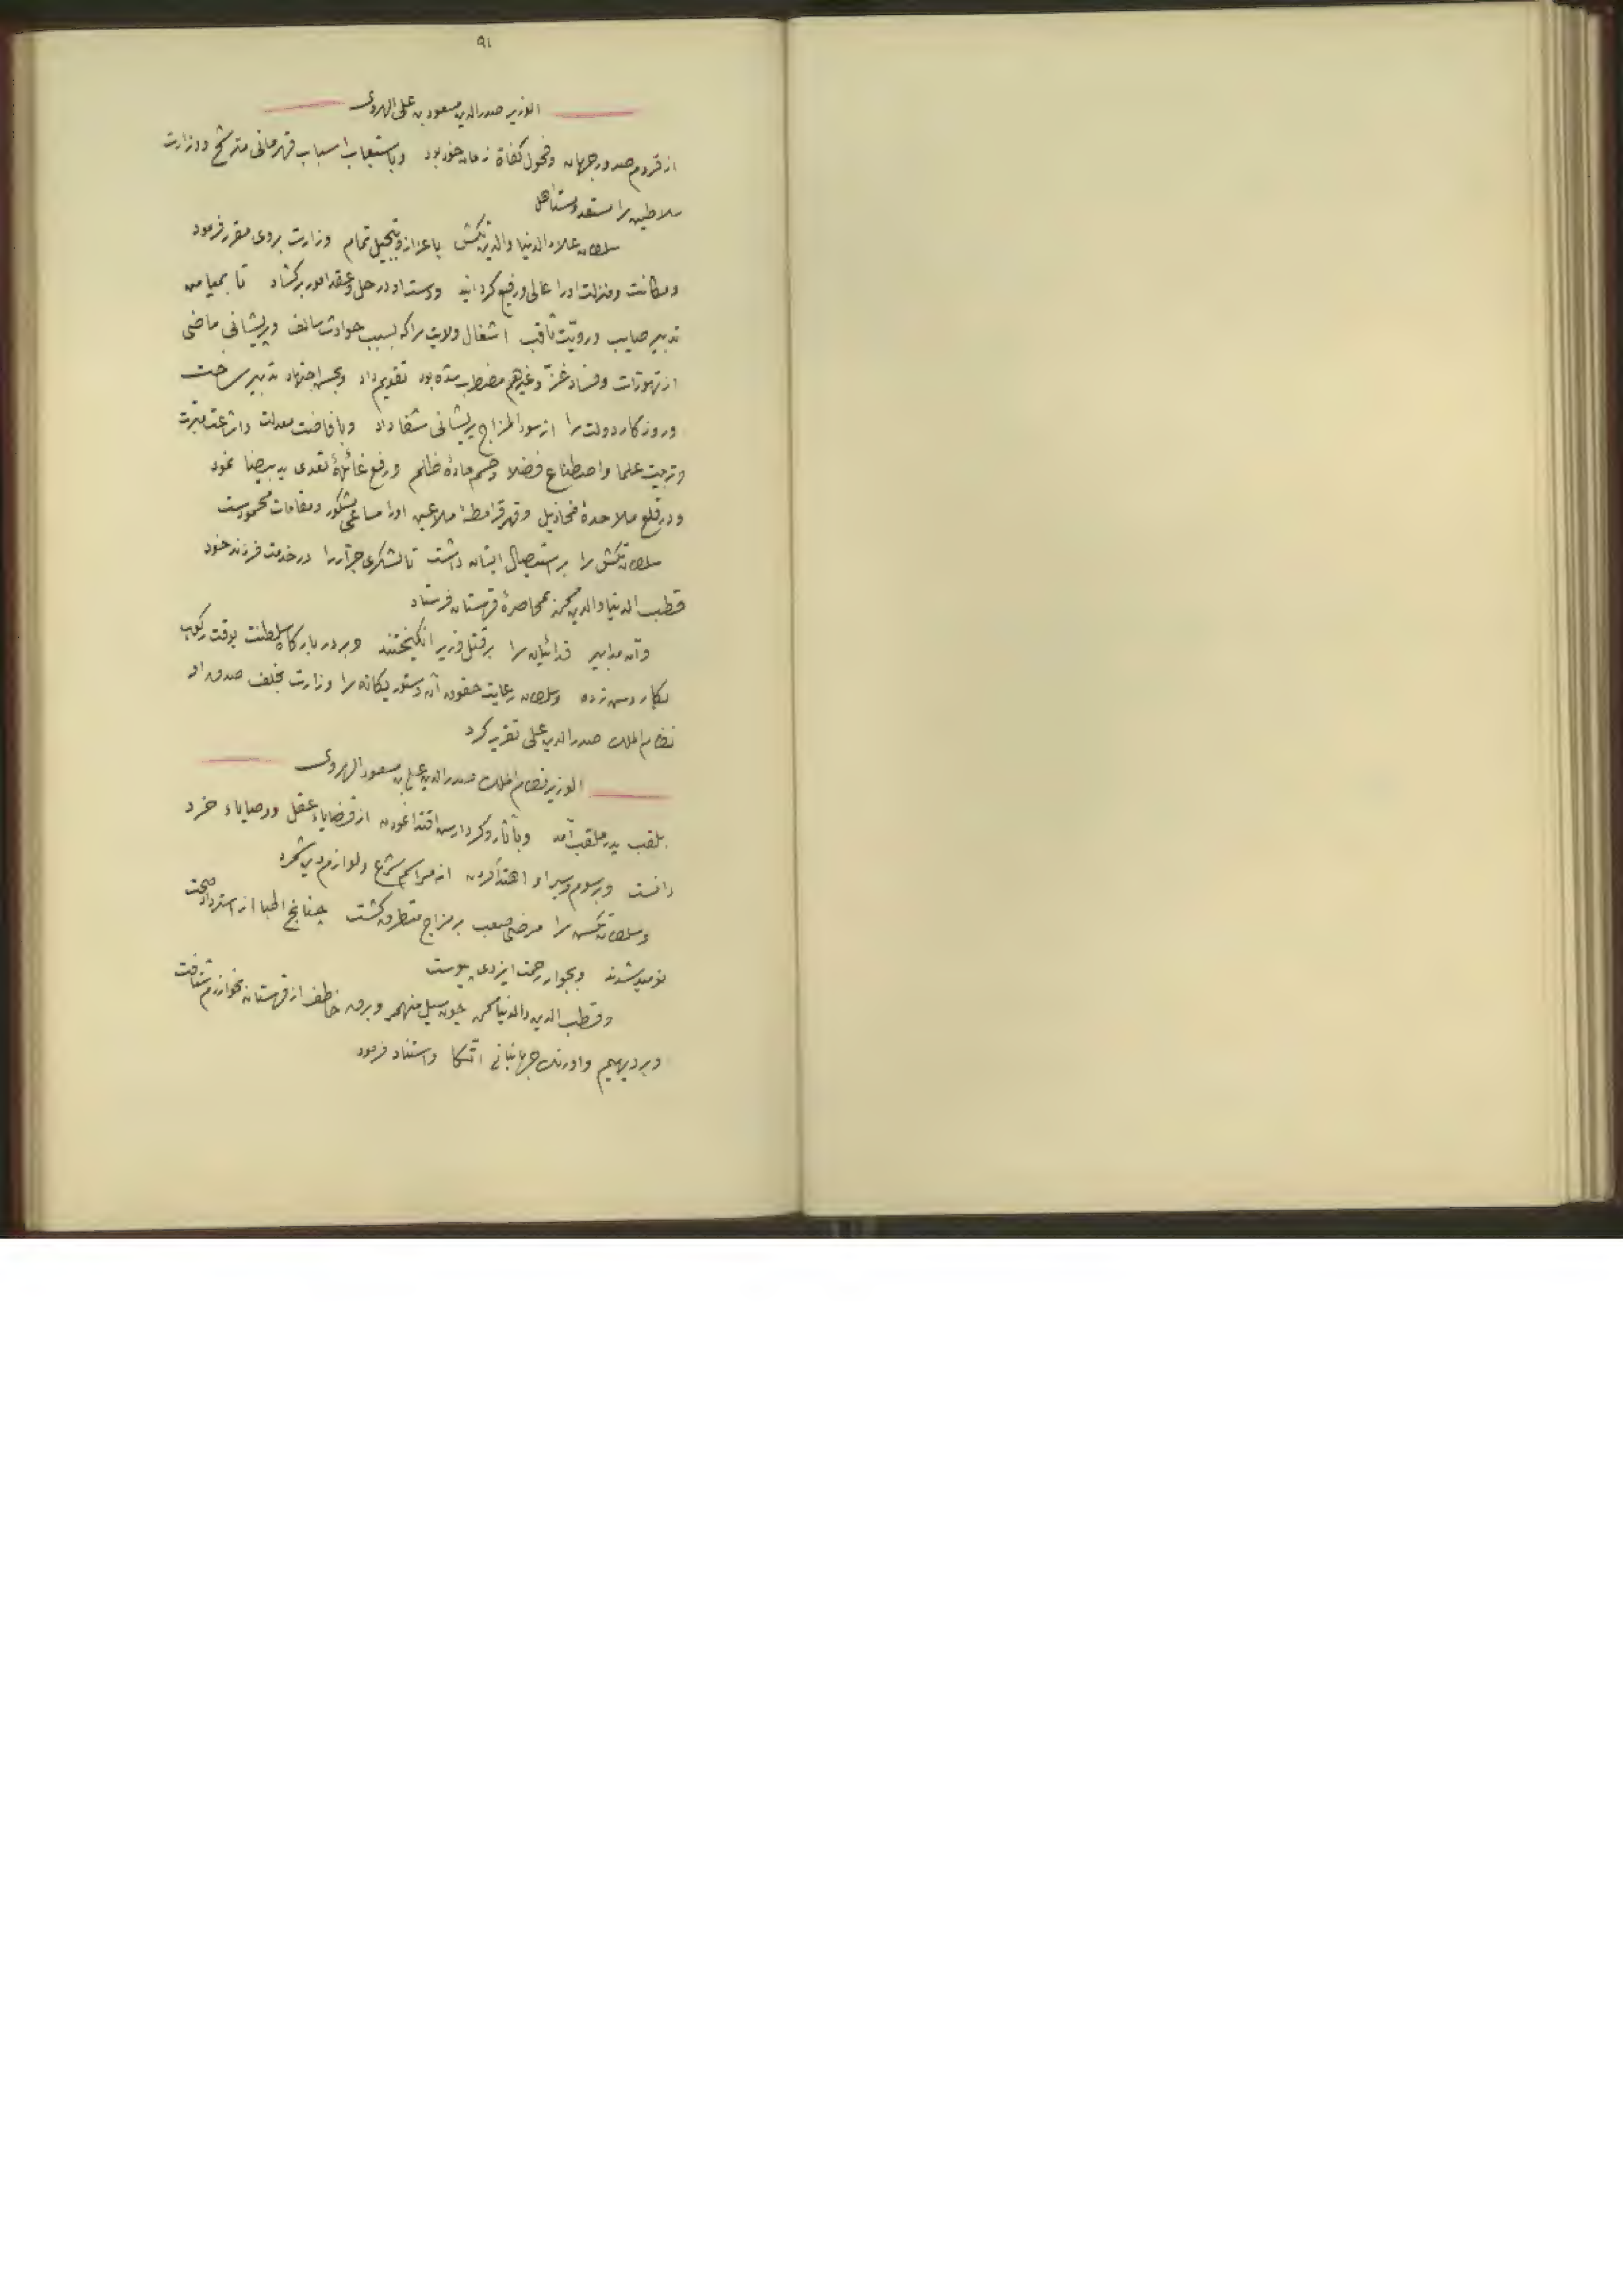 ۹۱
الوزیر صدرالدین مسعود بن علی الهروی
از قروم صدور جهان وفحول کفاة زمان خود بود وباستیعاب اسباب قهرمانی مترشح ووزارت
سلاطین را مستعد ومستأهل
سلطان علاء الدنیا والدین تکش باعزاز وتبجیل تمام وزارت بروی مقرر فرمود
ومکانت ومنزلت اورا عالی ورفیع کردانید ودست او در حل وعقد امور برکشاد تا بمیامن
تدبیر صایب ورویّت ثاقب اشغال ولایت را که بسبب حوادث سالف وپریشانی ماضی
از تهورات وفساد غزّ وغیرهم مضطرب شده بود تقویم داد وبحسن اجتهاد تدبیر ساخت
وروزکار دولت را از سوء المزاج پریشانی شفا داد وبافاضت معدلت واشاعت مبرت
وتربیت علما واصطناع فضلا وحسم مادهٔ ظلم ورفع غائلهٔ تعدی ید بیضا نمود
ودر قلع ملاحدهٔ مخاذیل وقهر قرامطهٔ ملاعین اورا مساعی مشکور ومقامات محمودست
سلطان تکش را بر استیصال ایشان داشت تا لشکری جرّار را در خدمت فرزند خود
قطب الدنیا والدین محمد بمحاصرهٔ قهستان فرستاد
وآن مدابیر فدائیان را بر قتل وزیر انکیختند وبر در بارکاه سلطنت بوقت رکوب
بکارد بزدند وسلطان رعایت حقوق آن دستور یکانه را وزارت بخلف صدق او
نظام الملک صدرالدین علی تقریر کرد
الوزیر نظام الملک صدرالدین علی بن مسعود الهروی
بلقب پدر ملقب آمد وبآثار وکردارش اقتدا نمودن از قضایاء عقل ووصایاء خرد
دانست وبرسوم وسیر او اهتدا کردن از مراسم شرع ولوازم دین شمرد
وسلطان تکش را مرضی صعب بر مزاج متطرق کشت چنانچ اطبا از استرداد صحت
نومید شدند وبجوار رحمت ایزدی پیوست
وقطب الدین والدنیا محمد چون سیل منهمر وبرق خاطف از قهستان بخوارزم شتافت
وبر دیهیم واورنک جهانبانی اتّکا واستناد فرمود